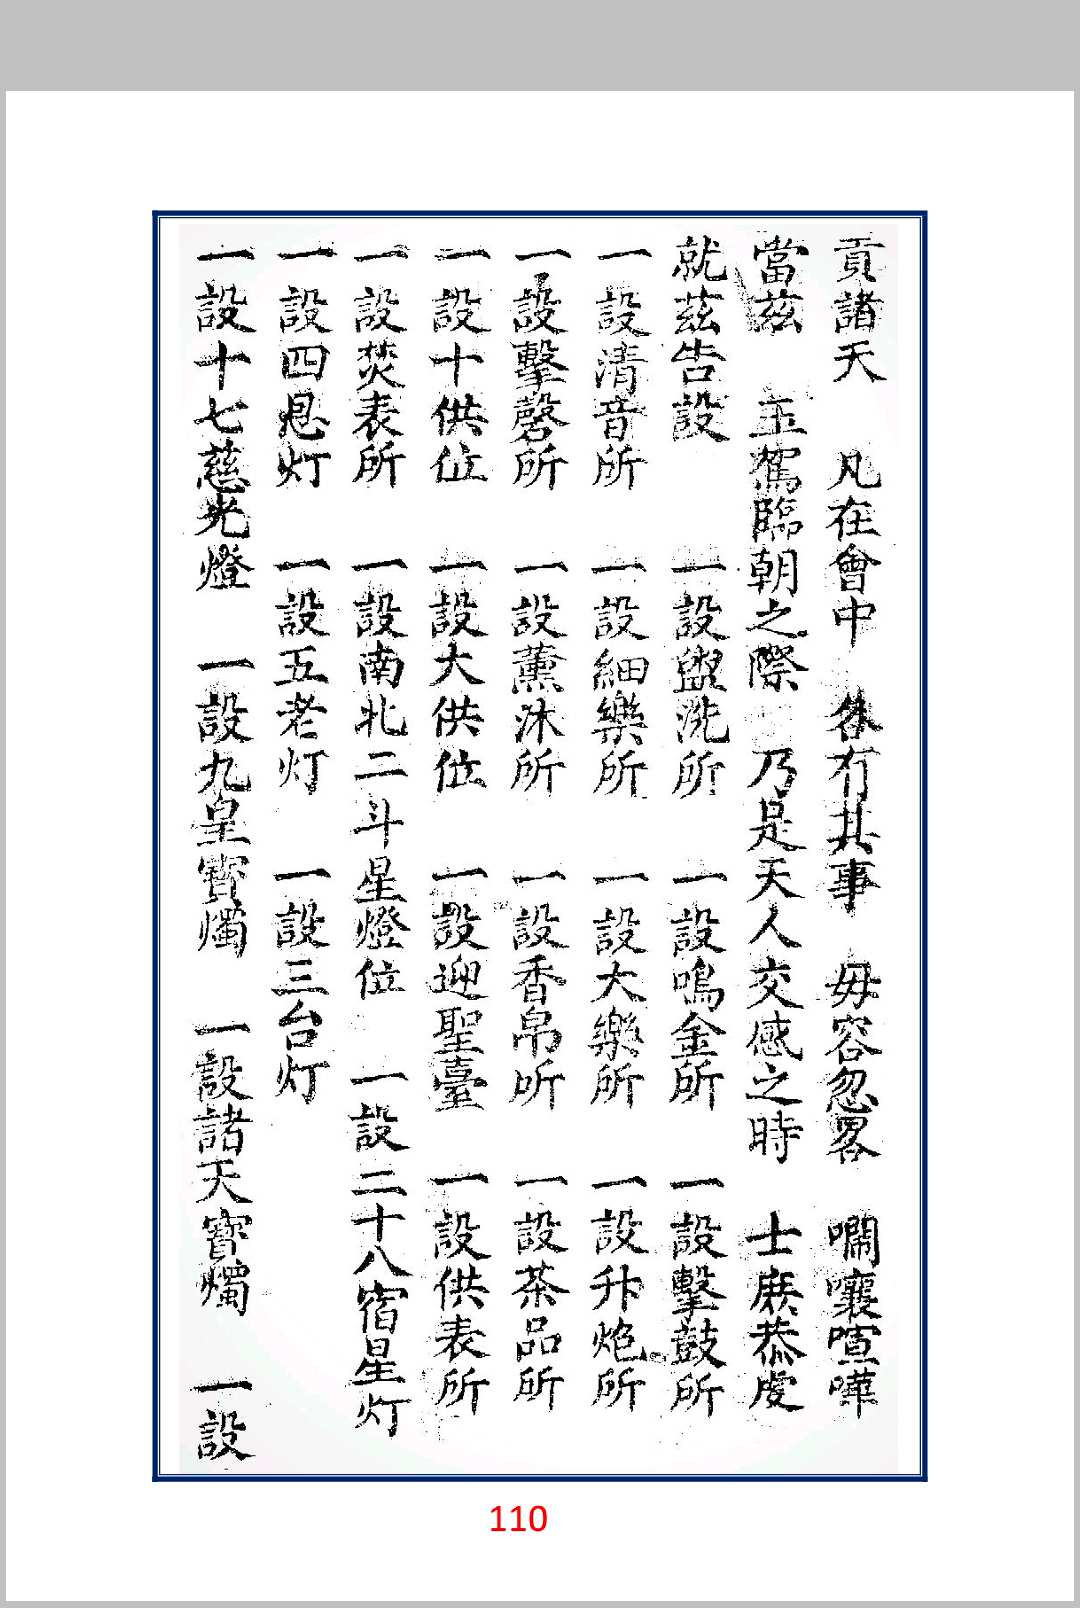 貢諸天　凡在會中　各冇其事　毋容忽畧　嘲嚷喧嘩
當茲　玉駕臨朝之際　乃是天人交感之時　士庶恭虔
就茲告設　一設盥洗所　一設鳴金所　一設擊鼓所
一設清音所　一設細樂所　一設大樂所　一設升炮所
一設擊磬所　一設薰沐所　一設香帛所　一設茶品所
一設十供位　一設大供位　一設迎聖臺　一設供表所
一設焚表所　一設南北二斗星燈位　一設二十八宿星灯
一設四恩灯　一設五老灯　一設三台灯
一設十七慈光燈　一設九皇寶燭　一設諸天寶燭　一設
110